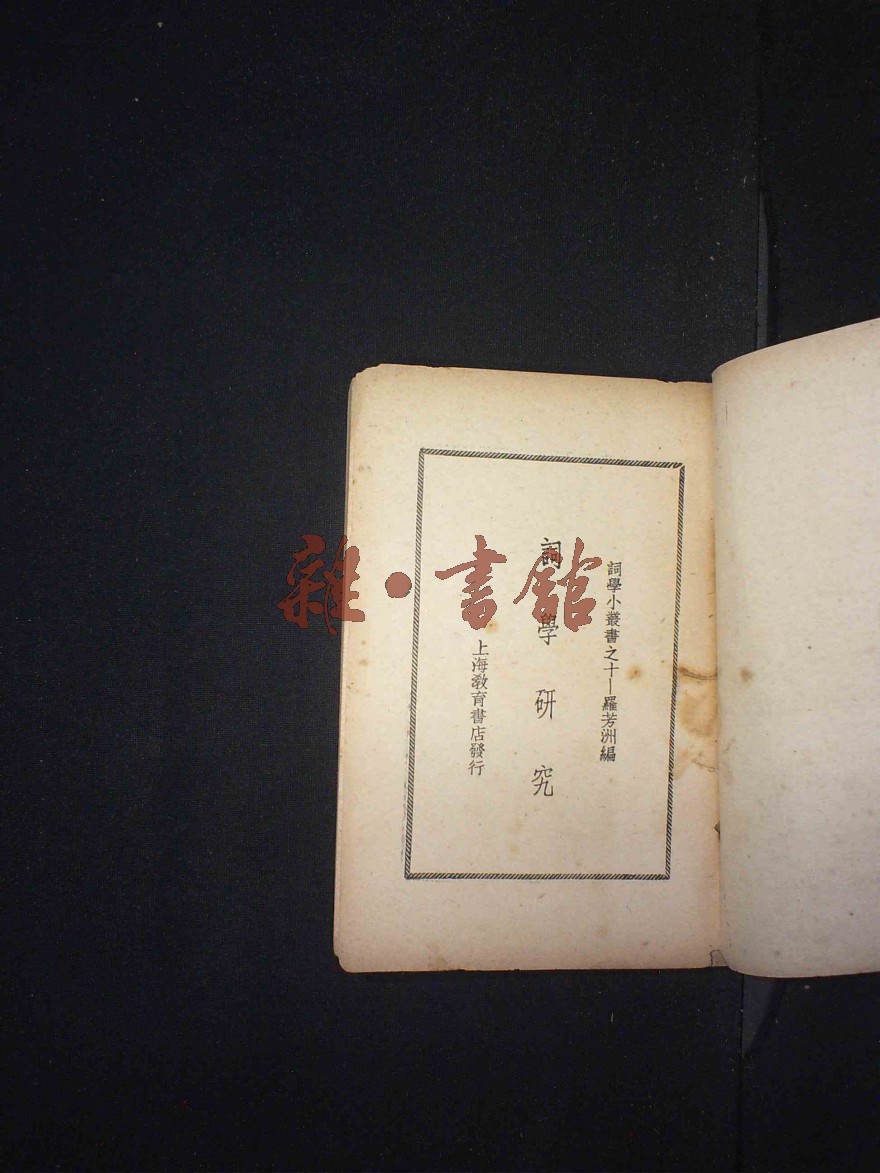 詞學小叢書之十—羅芳洲編
詞學研究
上海教育書店發行
雜·書館